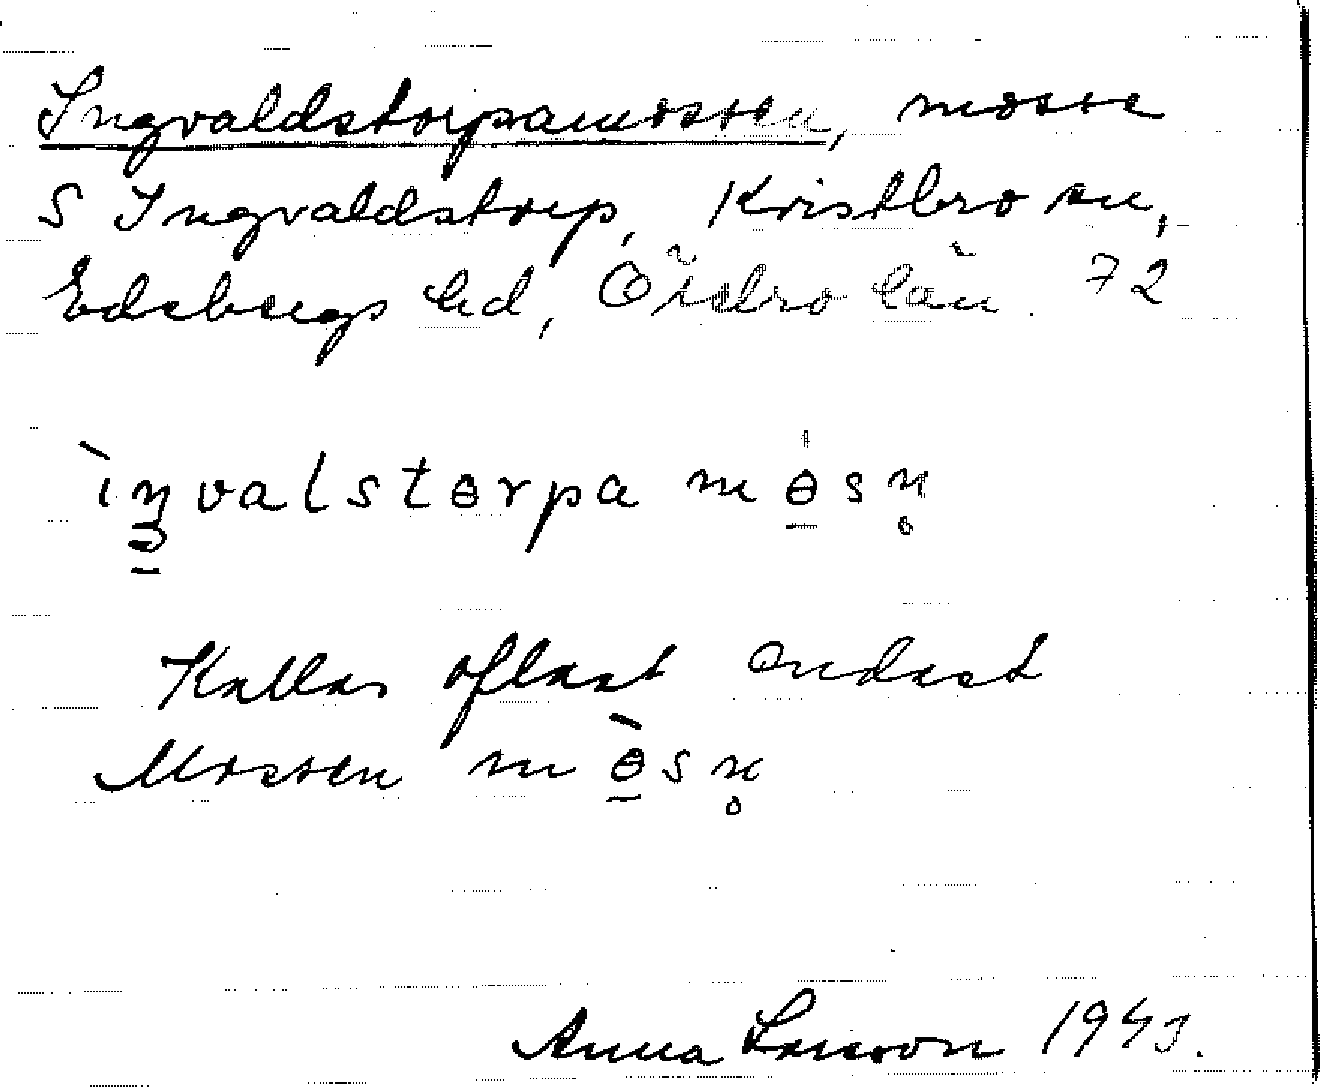 Ingvaldstorpamossen, mosse
S Ingvaldstorp, Kvistbro sn,
Edsbergs hd, Örebro län. 72
ìŋvalstɵrpa mɵ̇sn̥
Kallas oftast endast
Mossen mɵ̀sn̥
Anna Larsson 1943.